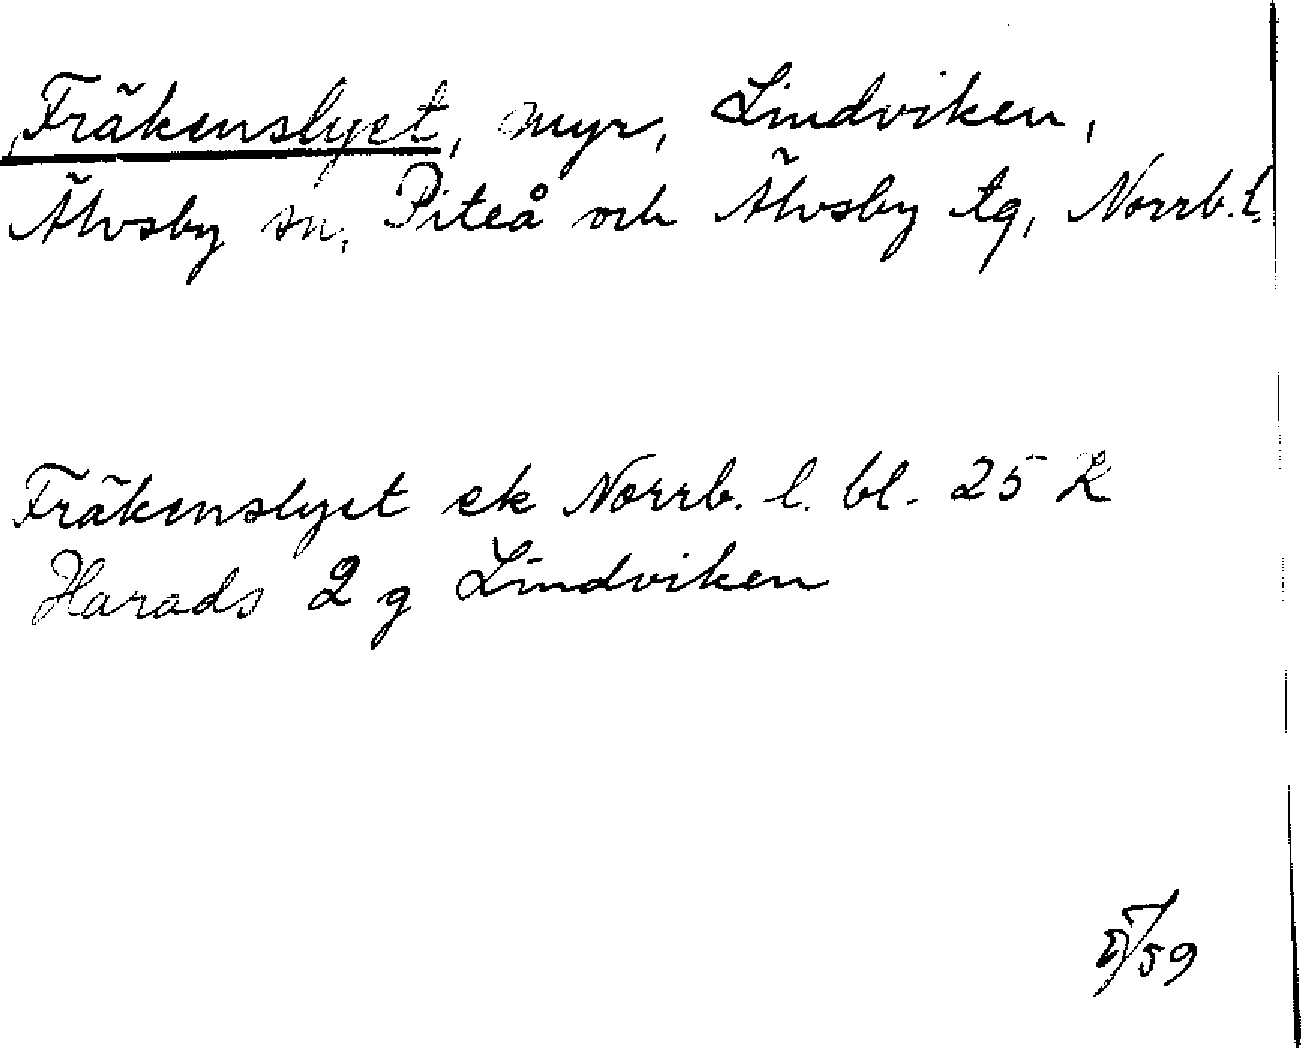 Fräkenslyet, myr, Lindviken,
Älvsby sn, Piteå och Älvsby tg, Norrb. l.
Fräkenslyet ek Norrb. l. bl. 25 K
Harads 2 g Lindviken
/59